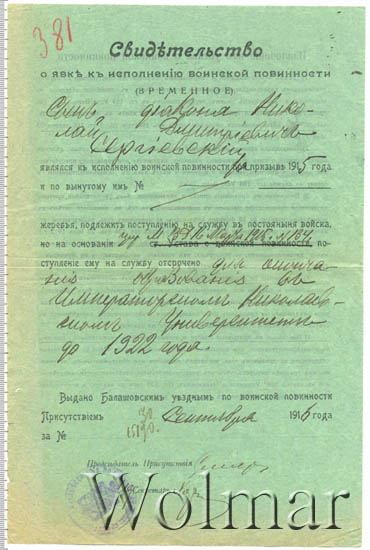 381
Свидѣтельство
о явкѣ къ исполненію воинской повинности
(ВРЕМЕННОЕ)
Сынъ діакона Нико-
лай Дмитріевичъ
Сергіевскій
являлся къ исполненію воинской повинности при призывѣ 1915 года
и по вынутому имъ №
жеребья, подлежитъ поступленію на службу въ постоянныя войска,
но на основаніи ст. Устава о воинской повинности, по-
ступленіе ему на службу отсрочено для оконча-
нія образованія въ
Императорскомъ Николаев-
скомъ Университетѣ
до 1922 года.
Выдано Балашовскимъ уѣзднымъ по воинской повинности
Присутствіемъ 30 Сентября 1915 года
за № 15190.
Предсѣдатель Присутствія
Секретарь
Wolmar